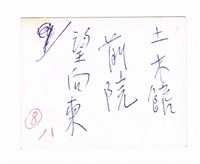 土木館
前院
望向東
⑧
八